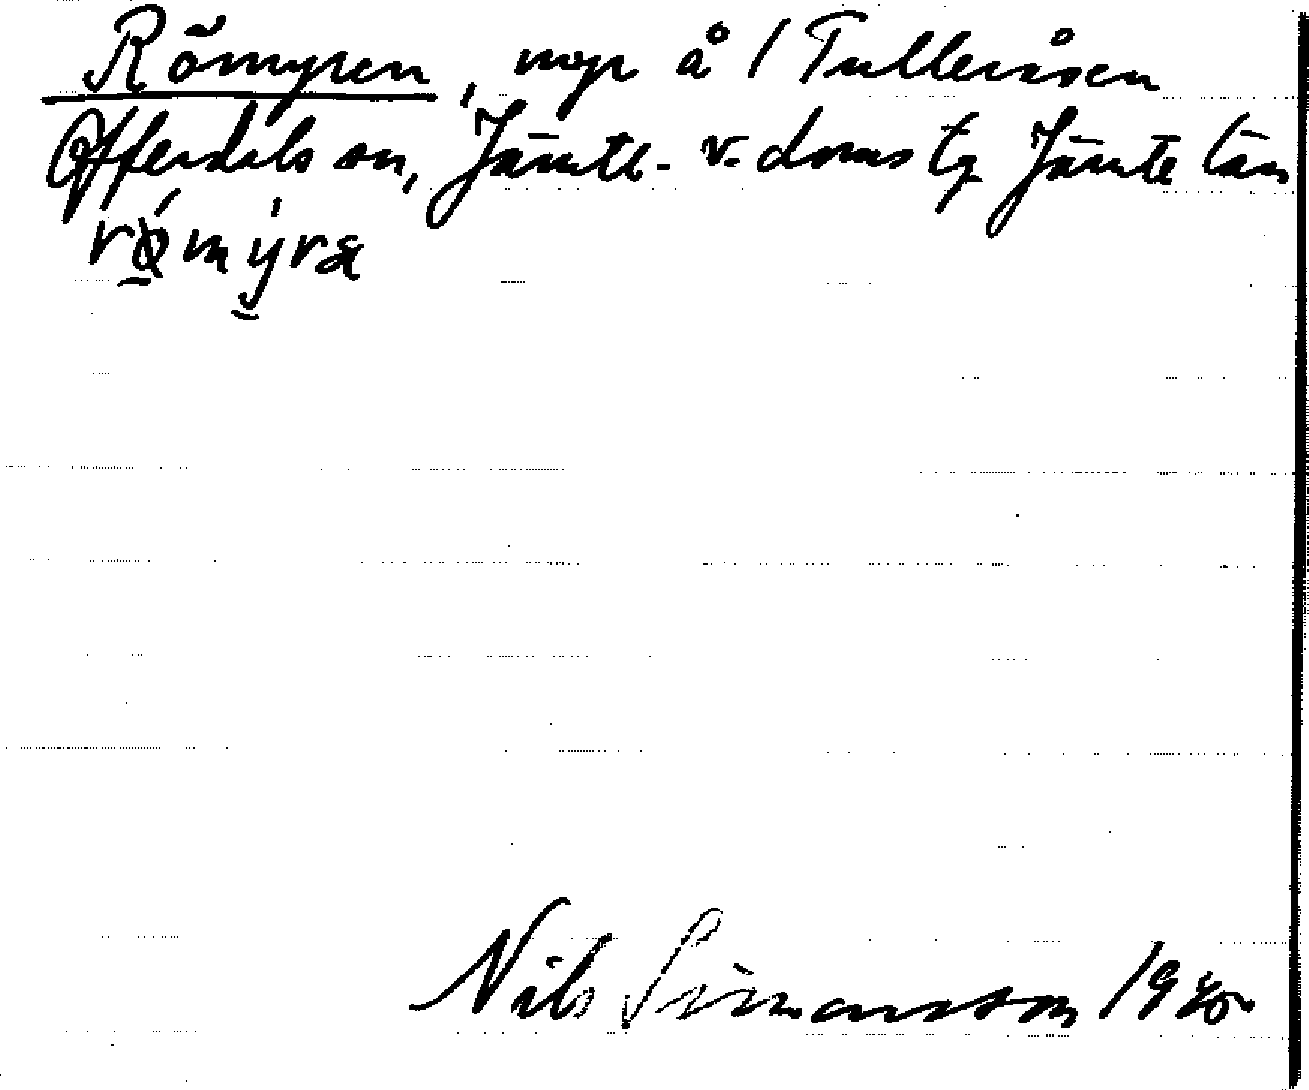 Römyren, myr å / Tulleråsen
Offerdals sn, Jämtl. v. doms tg Jämtl län
rømyra
Nils Simonsson 19